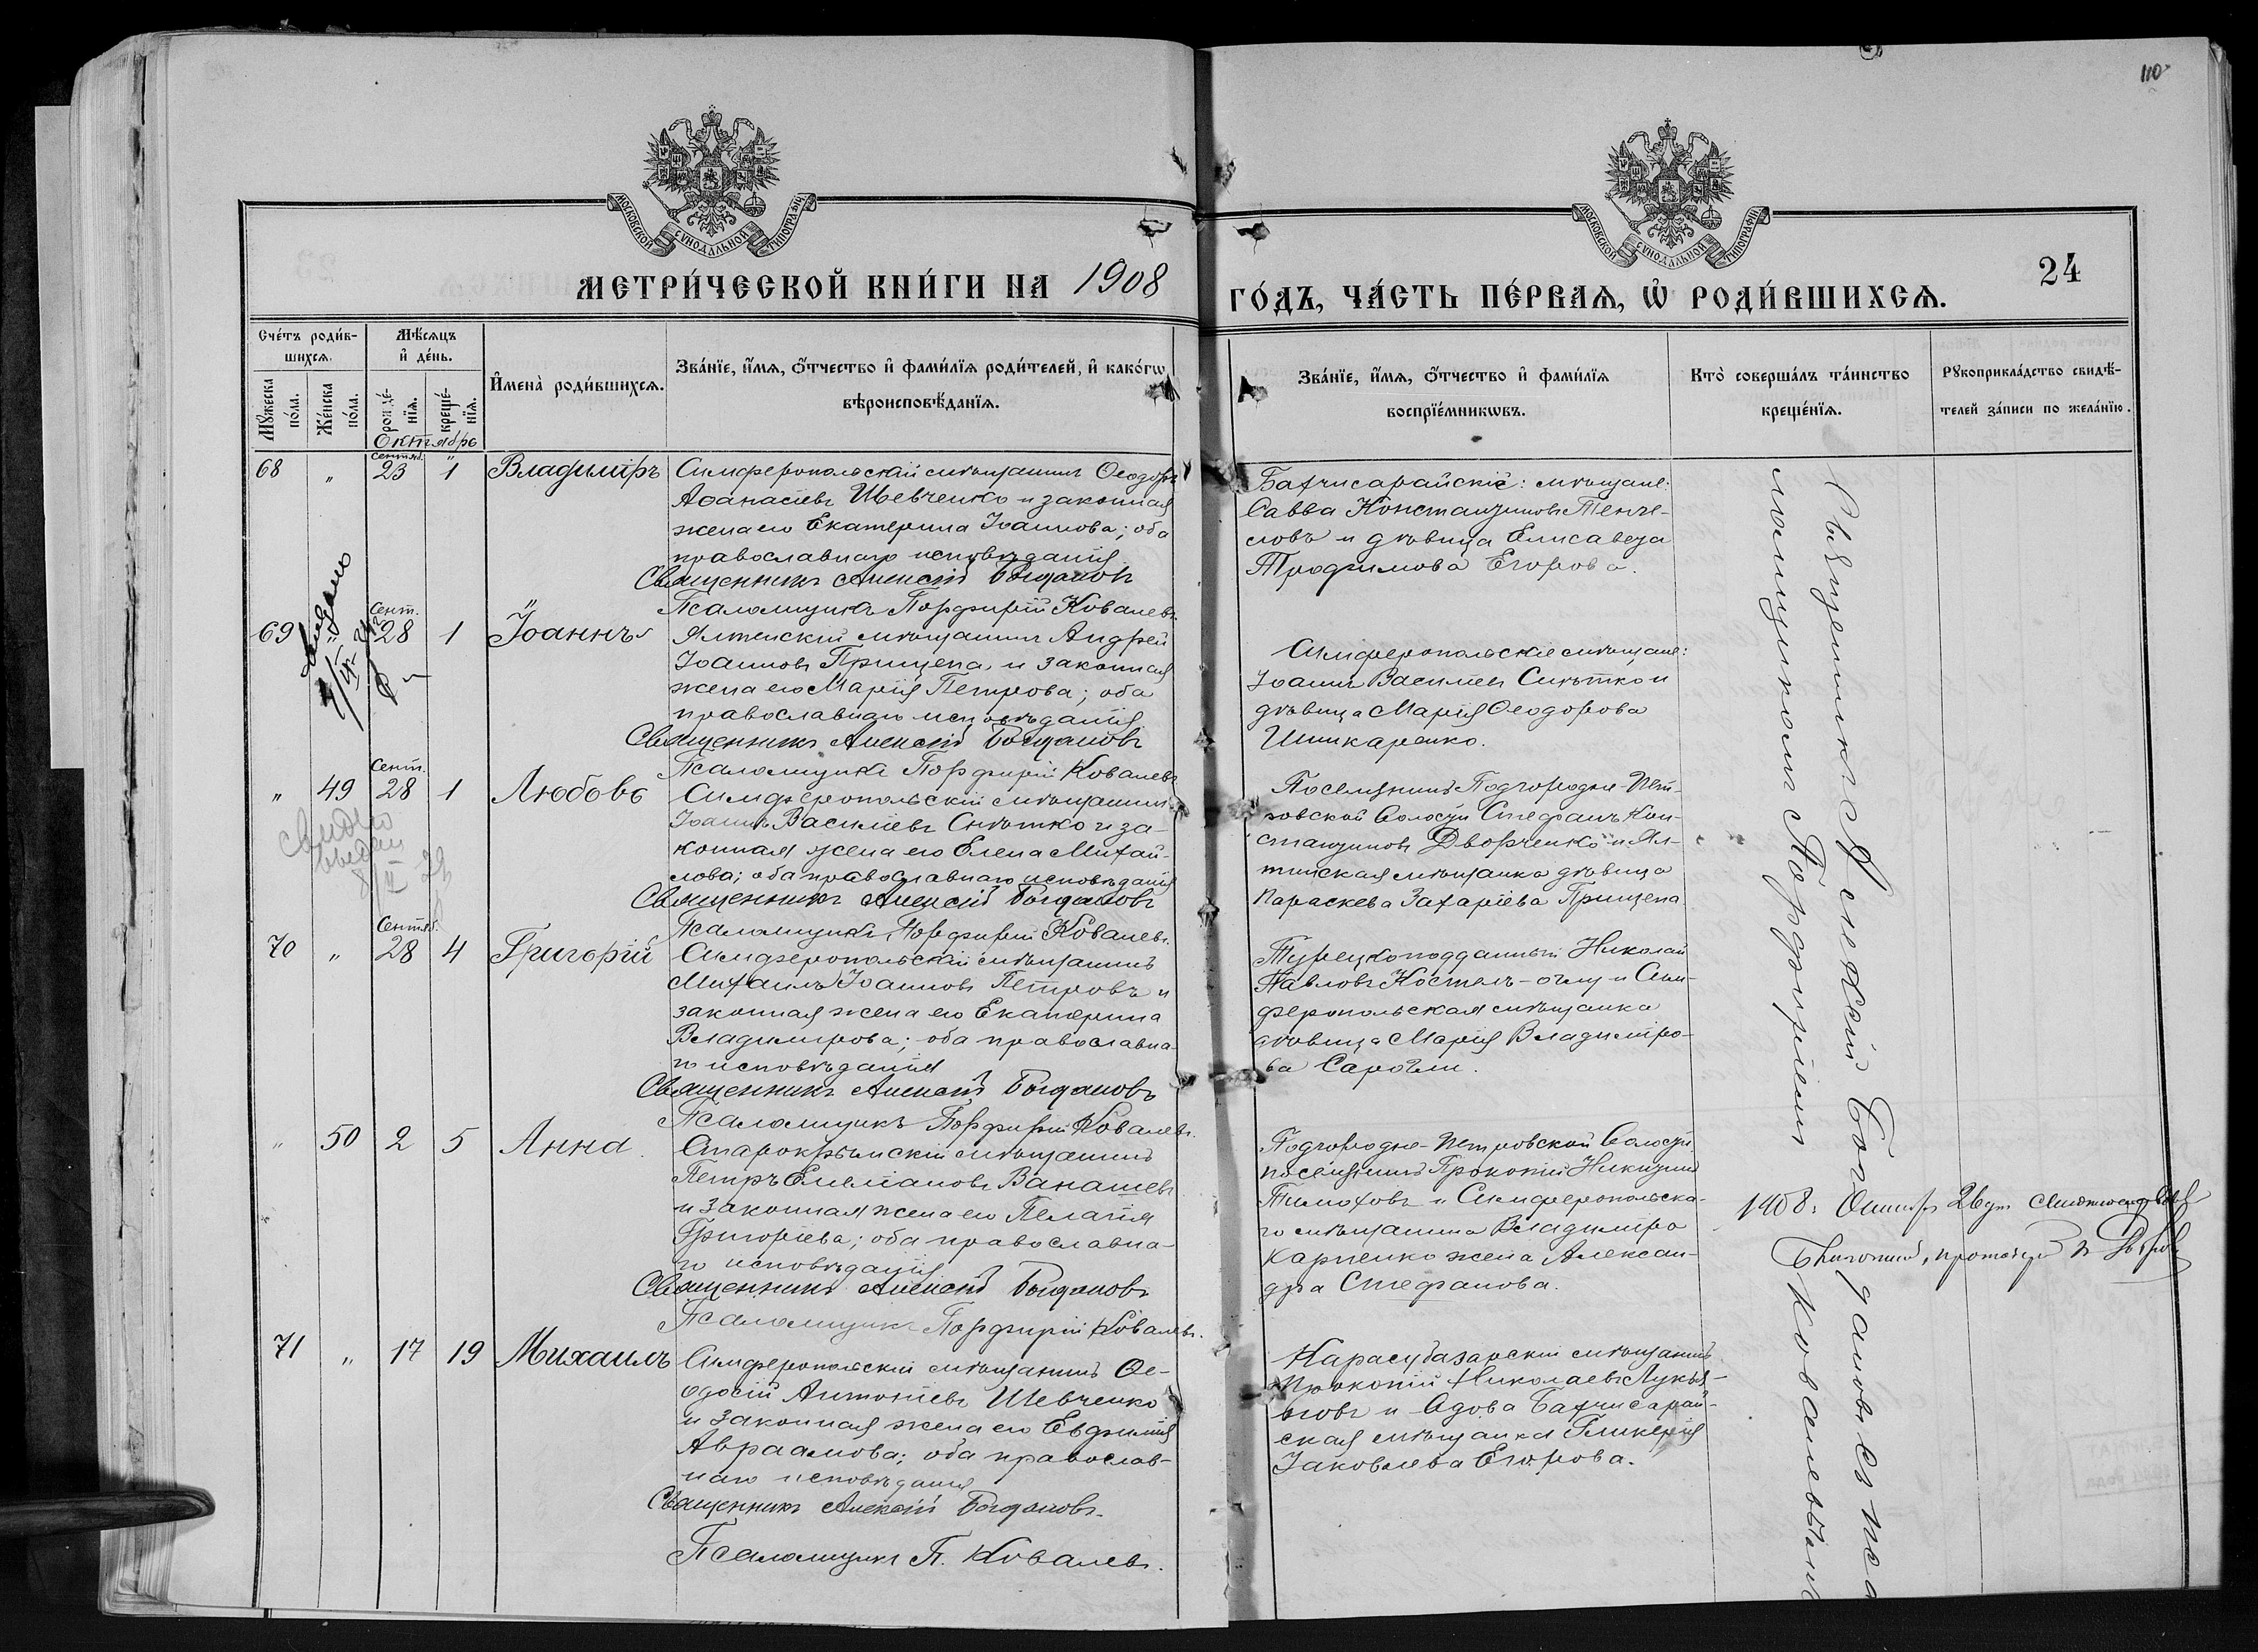 110
МОСКОВСКОЙ СѴНОДАЛЬНОЙ ТИПОГРАФІИ
МОСКОВСКОЙ СѴНОДАЛЬНОЙ ТИПОГРАФІИ
МЕТРИ́ЧЕСКОЙ КНИ́ГИ НА 1908
ГО́ДЪ, ЧА́СТЬ ПЕ́РВАЯ, Ѡ РОДИ́ВШИХСЯ.
24
Сче́тъ роди́в-
шихся.
Мꙋ́жеска по́ла.
Же́нска по́ла.
Мѣ́сяцъ
и҆ де́нь.
рожде́-
нїя.
креще́-
нїя.
И҆мена̀ роди́вшихся.
Зва́нїе, и҆́мя, ѻ҆́тчество и҆ фами́лїя роди́телей, и҆ како́гѡ
вѣроисповѣ́данїя.
Зва́нїе, и҆́мя, ѻ҆́тчество и҆ фами́лїя
воспрїе́мникѡвъ.
Кто̀ соверша́лъ та́инство
креще́нїя.
Рꙋкоприкла́дство свидѣ́-
телей за́писи по жела́нїю.
Октябрь
68 " Сентяб. 23 1 Владиміръ
Симферопольскій мѣщанинъ Ѳеодоръ
Аѳанасіевъ Шевченко и законная
жена его Екатерина Іоаннова; оба
православнаго исповѣданія
Священникъ Алексій Богдановъ
Псаломщикъ Порфирій Ковалевъ.
Бахчисарайскіе: мѣщане:
Савва Константиновъ
и дѣвица Елисавета
Трофимова Егорова.
69 " Сент. 28 1 Іоаннъ
Выдано
Ялтинскій мѣщанинъ Андрей
Іоанновъ Прищепа и законная
жена его Марія Петрова; оба
православнаго исповѣданія
Священникъ Алексій Богдановъ
Псаломщикъ Порфирій Ковалевъ
Симферопольскіе мѣщане:
Іоаннъ Василіев Снѣтко и
дѣвица Марія Ѳеодорова
Шинкаренко.
" 49 Сент. 28 1 Любовь
Симферопольскій мѣщанинъ
Іоаннъ Василіевъ Снѣтко и за-
конная жена его Елена Михай-
лова; оба православнаго исповѣданія
Священникъ Алексій Богдановъ
Псаломщикъ Порфирій Ковалевъ.
Поселянинъ Подгородне-Пет-
ровской волости Стефанъ Кон-
стантиновъ Дворченко и Ял-
тинская мѣщанка дѣвица
Параскева Захаріева Прищепа
70 " Сентяб. 28 4 Григорій
Симферопольскій мѣщанинъ
Михаилъ Іоанновъ Петровъ и
законная жена его Екатерина
Владимирова; оба православна-
го исповѣданія
Священникъ Алексій Богдановъ
Псаломщикъ Порфирій Ковалевъ.
Турецкоподданный Николай
Павловъ Костель-оглу и Сим-
феропольская мѣщанка
дѣвица Марія Владиміро-
ва
" 50 2 5 Анна
Старокрымскій мѣщанинъ
Петръ Емеліановъ
и законная жена его Пелагія
Григоріева; оба православна-
го исповѣданія
Священникъ Алексій Богдановъ
Псаломщикъ Порфирій Ковалевъ.
Подгородне-Петровской волости
поселянинъ Прокопій Никитинъ
Тимоховъ и Симферопольска-
го мѣщанина Владиміра
Карпенко жена Алексан-
дра Стефанова.
71 " 17 19 Михаилъ
Симферопольскій мѣщанинъ Ѳе-
одосій Антоніевъ Шевченко
и законная жена его Евфимія
Авраамова; оба православ-
наго исповѣданія
Священникъ Алексій Богдановъ.
Псаломщикъ П. Ковалевъ.
Карасубазарскій мѣщанинъ
Прокопій Николаевъ Лукья-
новъ и вдова Бахчисарай-
ская мѣщанка Гликерія
Іаковлева Егорова.
Священникъ Алексій Богдановъ съ пса-
ломщикомъ Порфиріемъ Ковалевымъ
1908.
Благочинный, протоіерей